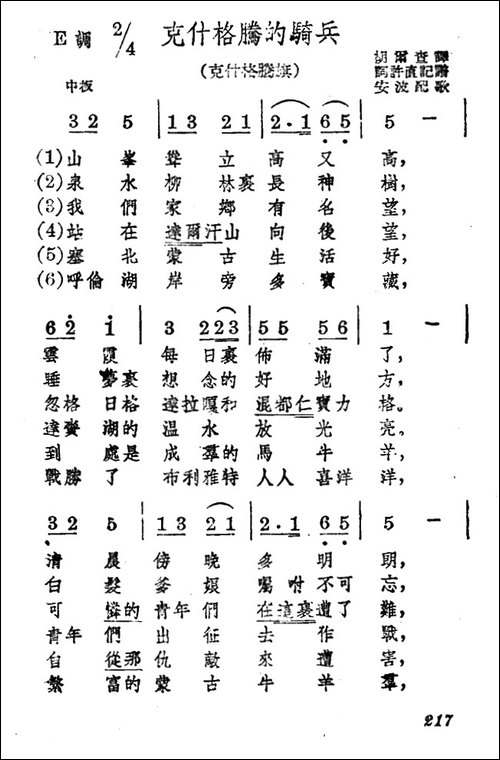 E 調 2/4 克什格騰的騎兵
(克什格騰旗)
胡爾查譯
許直記譜
中板
安波配歌
3 2 5 | 1 3 2 1 | 2 · 1 6 5 | 5 — |
(1)山峯聳立高又高,
(2)泉水柳林裏長神樹,
(3)我們家鄉有名望,
(4)站在達爾汗山向後望,
(5)塞北蒙古生活好,
(6)呼倫湖岸旁多寶藏,
6 2 1 | 3 2 2 3 | 5 5 5 6 | 1 — |
雲霞每日裏佈滿了,
睡夢裏想念的好地方,
忽格日格達拉嘎和混都仁寶力格。
達賚湖的溫水放光亮,
到處是成羣的馬牛羊,
戰勝了布利雅特人人喜洋洋,
3 2 5 | 1 3 2 1 | 2 · 1 6 5 | 5 — |
清晨傍晚多明朗,
白髮爹娘囑咐不可忘,
可憐的青年們在這裏遭了難,
青年們出征去作戰,
自從那仇敵來遭害,
繁富的蒙古牛羊羣,
217